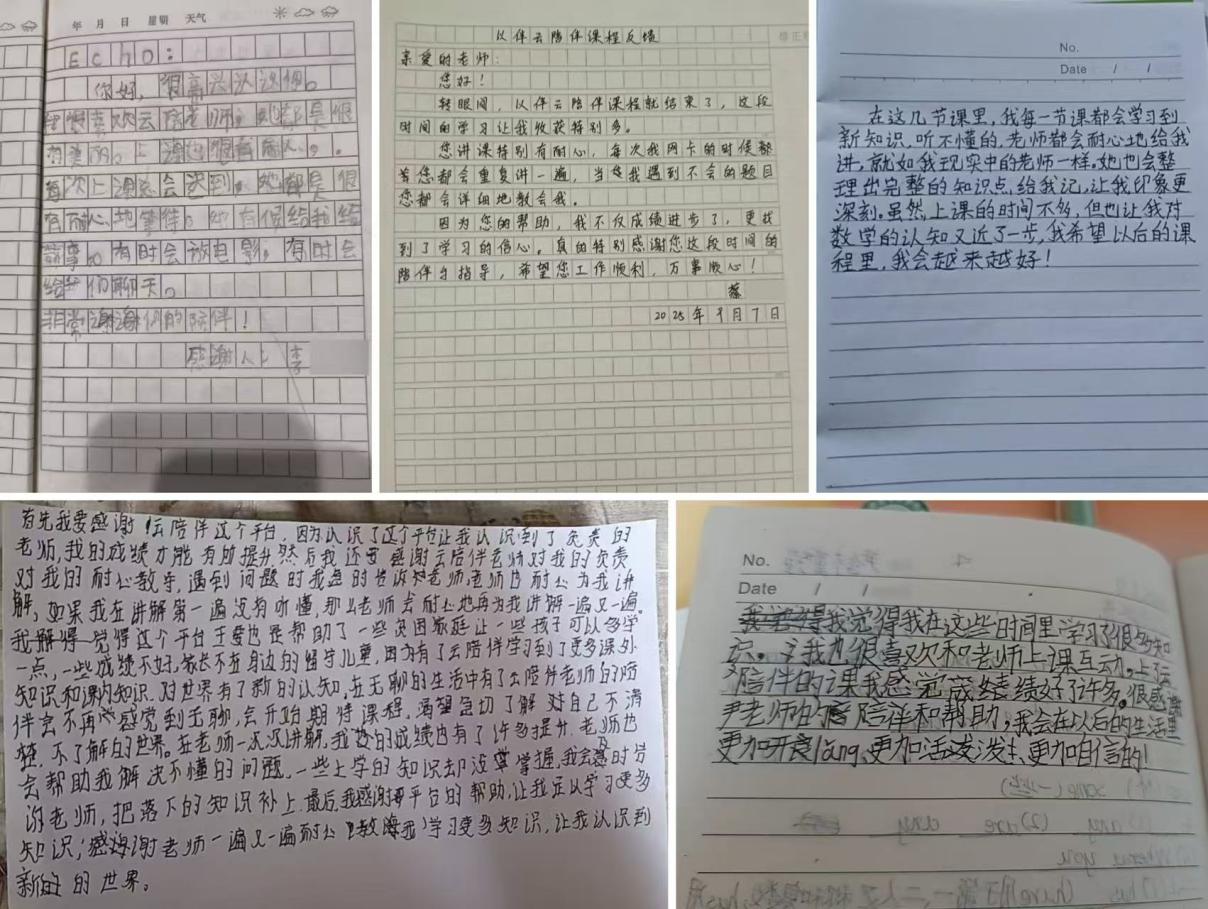 年 月 日 星期 天气
Echo:
你好,很高兴认识你。
我很喜欢云陪老师,她是很
每次上课总会迟到,她都是很
有耐心地等待。她有候给我结
故事。有时会放电影。有时会
给我们聊天。
非常谢谢你们的陪伴!
感谢人: 李
以伴云陪伴课程反馈
亲爱的老师:
您好!
转眼间,以伴云陪伴课程就结束了,这段
时间的学习让我收获特别多。
您讲课特别有耐心,每次我网卡的时候都
您都会重复讲一遍,当我遇到不会的题目
您都会详细地教会我。
因为您的帮助,我不仅成绩进步了,更找
到了学习的信心。真的特别感谢您这段时间的
陪伴与指导,希望您工作顺利,万事顺心!
蔡
2025年9月7日
No.
Date / /
在这几节课里,我每一节课都会学习到
新知识,听不懂的,老师都会耐心地给我
讲,就如我现实中的老师一样,她也会整
理出完整的知识点,给我记,让我印象更
深刻。虽然上课的时间不多,但也让我对
数学的认知又近了一步,我希望以后的课
程里,我会越来越好!
首先我要感谢云陪伴这个平台,因为认识了这个平台让我认识到了负责的
老师,我的成绩才能有所提升然后我还要感谢云陪伴老师对我的负责
对我的耐心教导,遇到问题时我急时告诉老师,老师也耐心为我讲
解,如果我在讲解第一遍没有听懂,那么老师会耐心地再为我讲解一遍又一遍。
我觉得这个平台主要也是帮助了一些贫困家庭让一些孩子可以多学
一点,一些成绩不好,家长不在身边的留守儿童,因为有了云陪伴学习到了更多课外
知识和课内知识.对世界有了新的认知,在无聊的生活中有了云陪伴老师的陪
伴会不再感觉到无聊,会开始期待课程,渴望急切了解对自己不清
楚,不了解的世界。在老师一次次讲解,我的成绩也有了许多提升.老师也
会帮助我解决不懂的问题,一些上学的知识却没掌握,我会及时告
诉老师,把落下的知识补上.最后,我感谢平台的帮助,让我足以学习更多
知识,感谢老师一遍又一遍耐心教海我学习更多知识,让我认识到
新的的世界。
No.
Date / /
我觉得我觉得我在这些时间里学习了很多知
识。我也很喜欢和老师上课互动。上了云
陪伴的课我感觉成绩绩好了许多。很感谢
尹老师的陪洋和帮助,我会在以后的生活里
更加开lǎng、更加活泼、更加自信的!